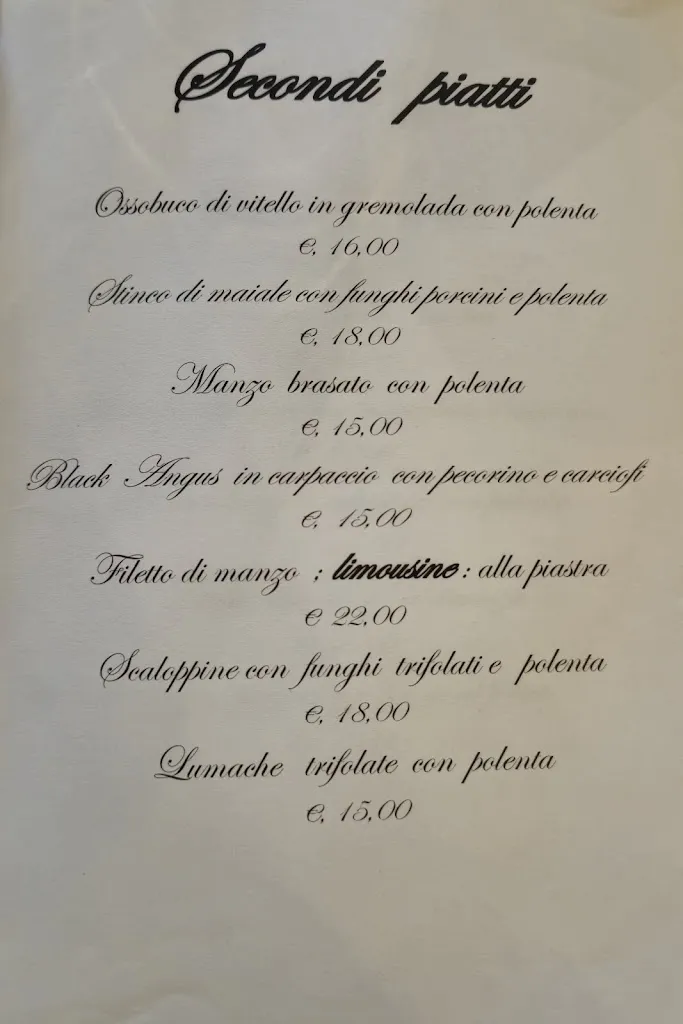 Secondi piatti
Ossobuco di vitello in gremolada con polenta
€, 16,00
Stinco di maiale con funghi porcini e polenta
€, 18,00
Manzo brasato con polenta
€, 15,00
Black Angus in carpaccio con pecorino e carciofi
€, 15,00
Filetto di manzo ; limousine : alla piastra
€ 22,00
Scaloppine con funghi trifolati e polenta
€, 18,00
Lumache trifolate con polenta
€, 15,00